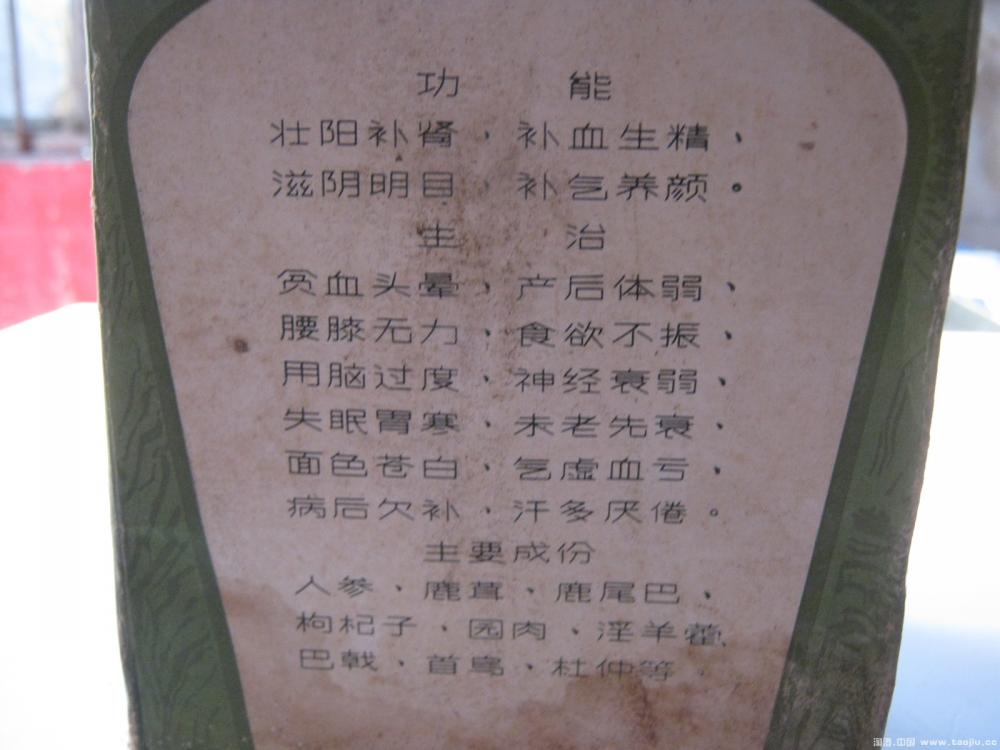 功 能
壮阳补肾、补血生精、
滋阴明目、补气养颜。
主 治
贫血头晕、产后体弱、
腰膝无力、食欲不振、
用脑过度、神经衰弱、
失眠胃寒、未老先衰、
面色苍白、气虚血亏、
病后欠补、汗多厌倦。
主要成份
人参、鹿茸、鹿尾巴、
枸杞子、园肉、淫羊藿、
巴戟、首乌、杜仲等
淘酒.中国 www.taojiu.cc